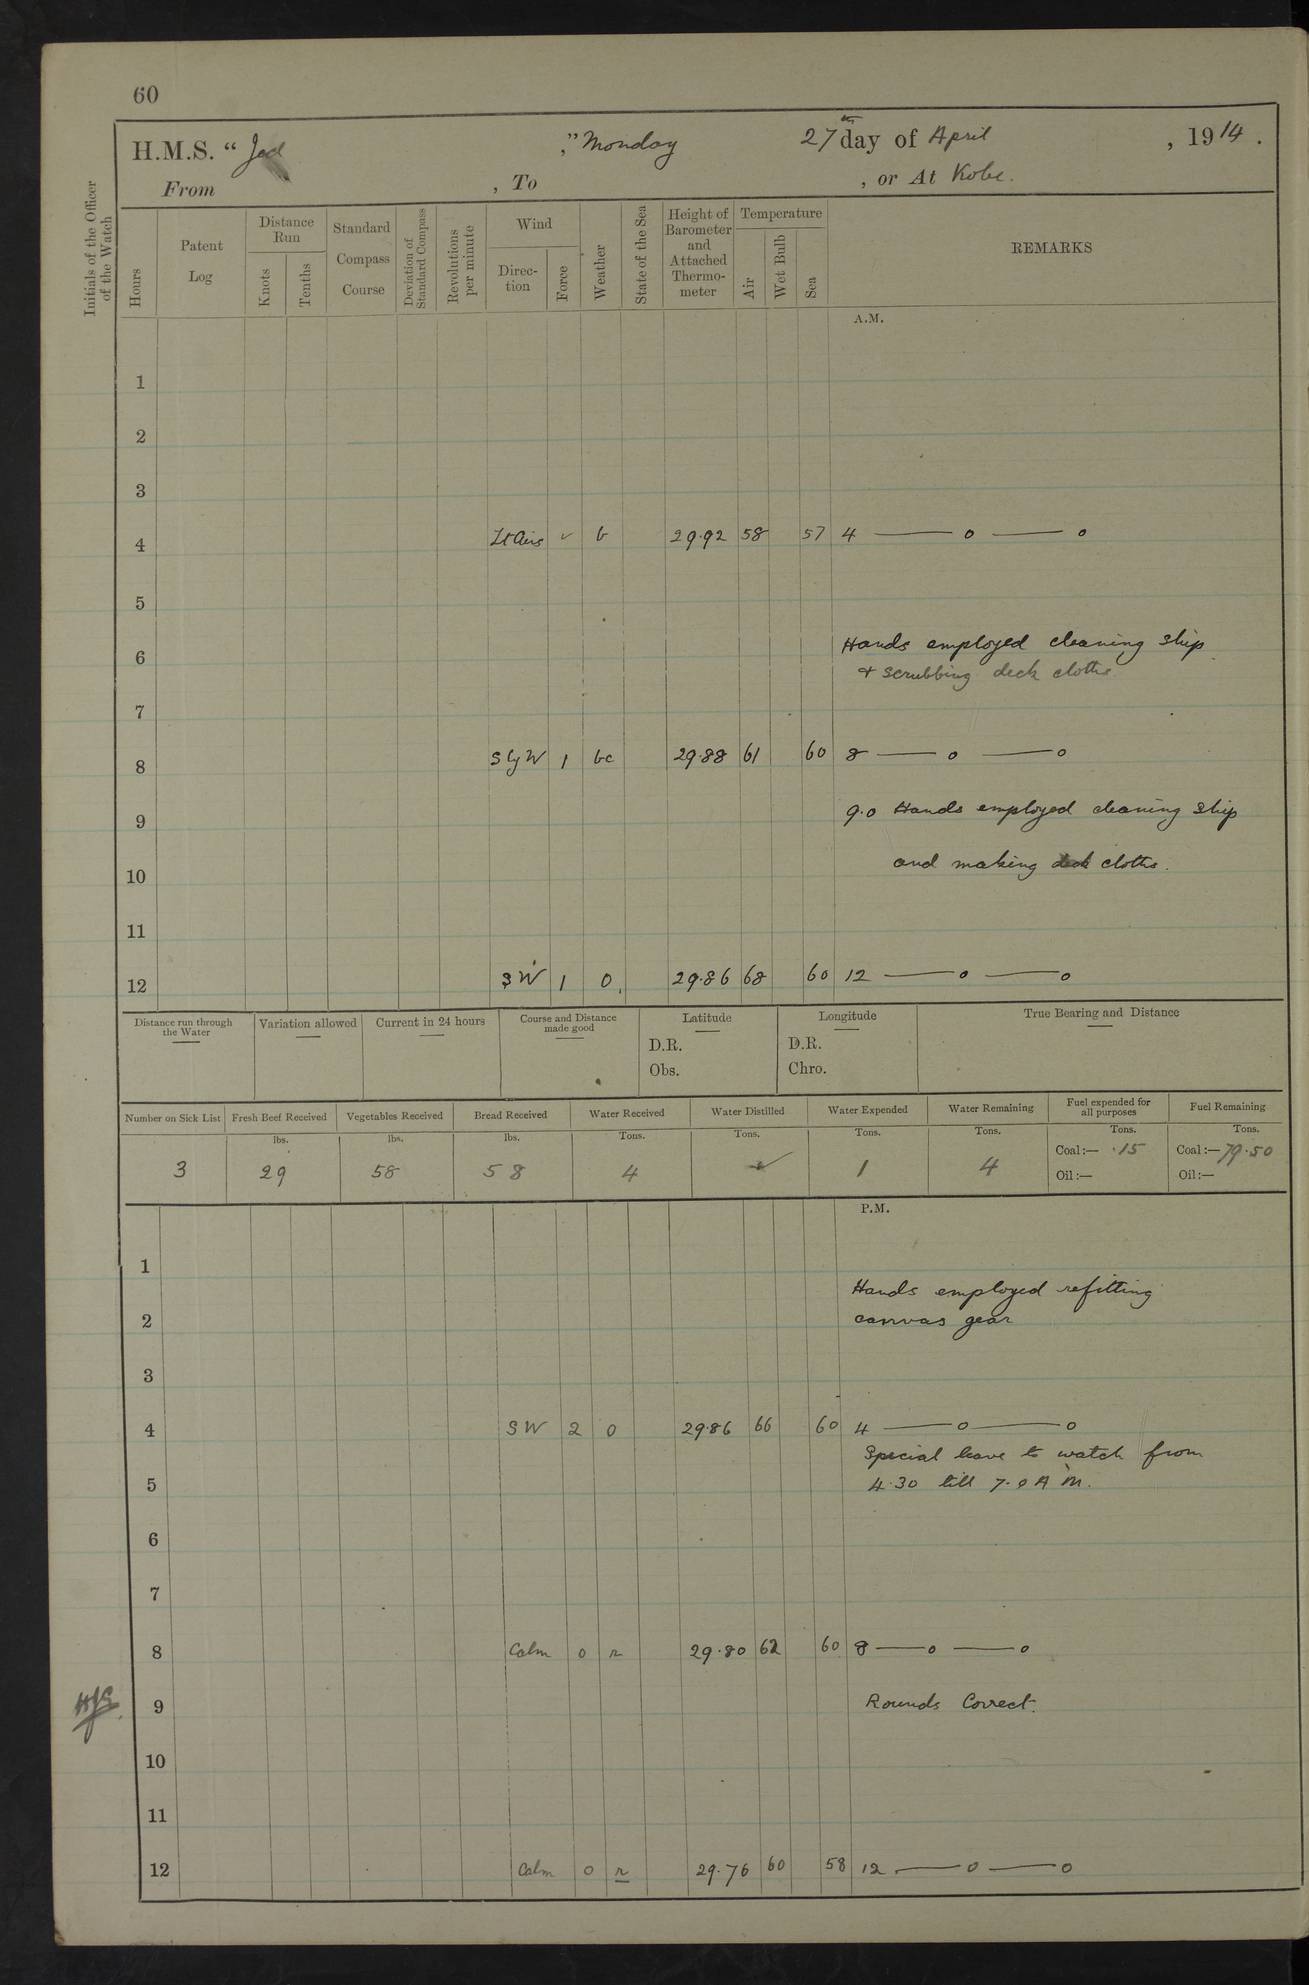 60
H.M.S. “Jed ,” Monday 27th day of April , 1914 .
From , To , or At Kobe.
Initials of the Officer of the Watch
Hours
Patent Log
Distance Run
Knots
Tenths
Standard Compass Course
Deviation of Standard Compass
Revolutions per minute
Wind
Direc-tion
Force
Weather
State of the Sea
Height of Barometer and Attached Thermo-meter
Temperature
Air
Wet Bulb
Sea
REMARKS
A.M.
1
2
3
4 Lt Airs ✓ b 29.92 58 57 4 —— o —— o
5
Hands employed cleaning ship
6
& scrubbing deck cloths
7
8 S by W 1 bc 29.88 61 60 8 —— o —— o
9 9.0 Hands employed cleaning ship
10 and making deck cloths.
11
12 SW 1 o. 29.86 68 60 12 —— o —— o
Distance run through the Water
Variation allowed
Current in 24 hours
Course and Distance made good
Latitude
D.R.
Obs.
Longitude
D.R.
Chro.
True Bearing and Distance
Number on Sick List
3
Fresh Beef Received
lbs.
29
Vegetables Received
lbs.
58
Bread Received
lbs.
58
Water Received
Tons.
4
Water Distilled
Tons.
✓
Water Expended
Tons.
1
Water Remaining
Tons.
4
Fuel expended for all purposes
Tons.
Coal:— .15
Oil:—
Fuel Remaining
Tons.
Coal:— 79.50
Oil:—
P.M.
1
Hands employed refitting
2 canvas gear
3
4 SW 2 o 29.86 66 60 4 —— o —— o
Special leave to watch from
5 4.30 till 7.0 A M.
6
7
8 Calm 0 r 29.80 62 60 8 —— o —— o
9 Rounds Correct.
10
11
12 Calm 0 r 29.76 60 58 12 —— o —— o